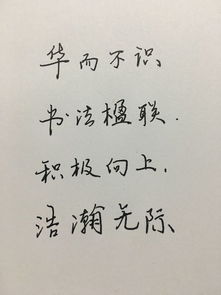 华而不识、
书法楹联.
积极向上.
浩瀚无际、